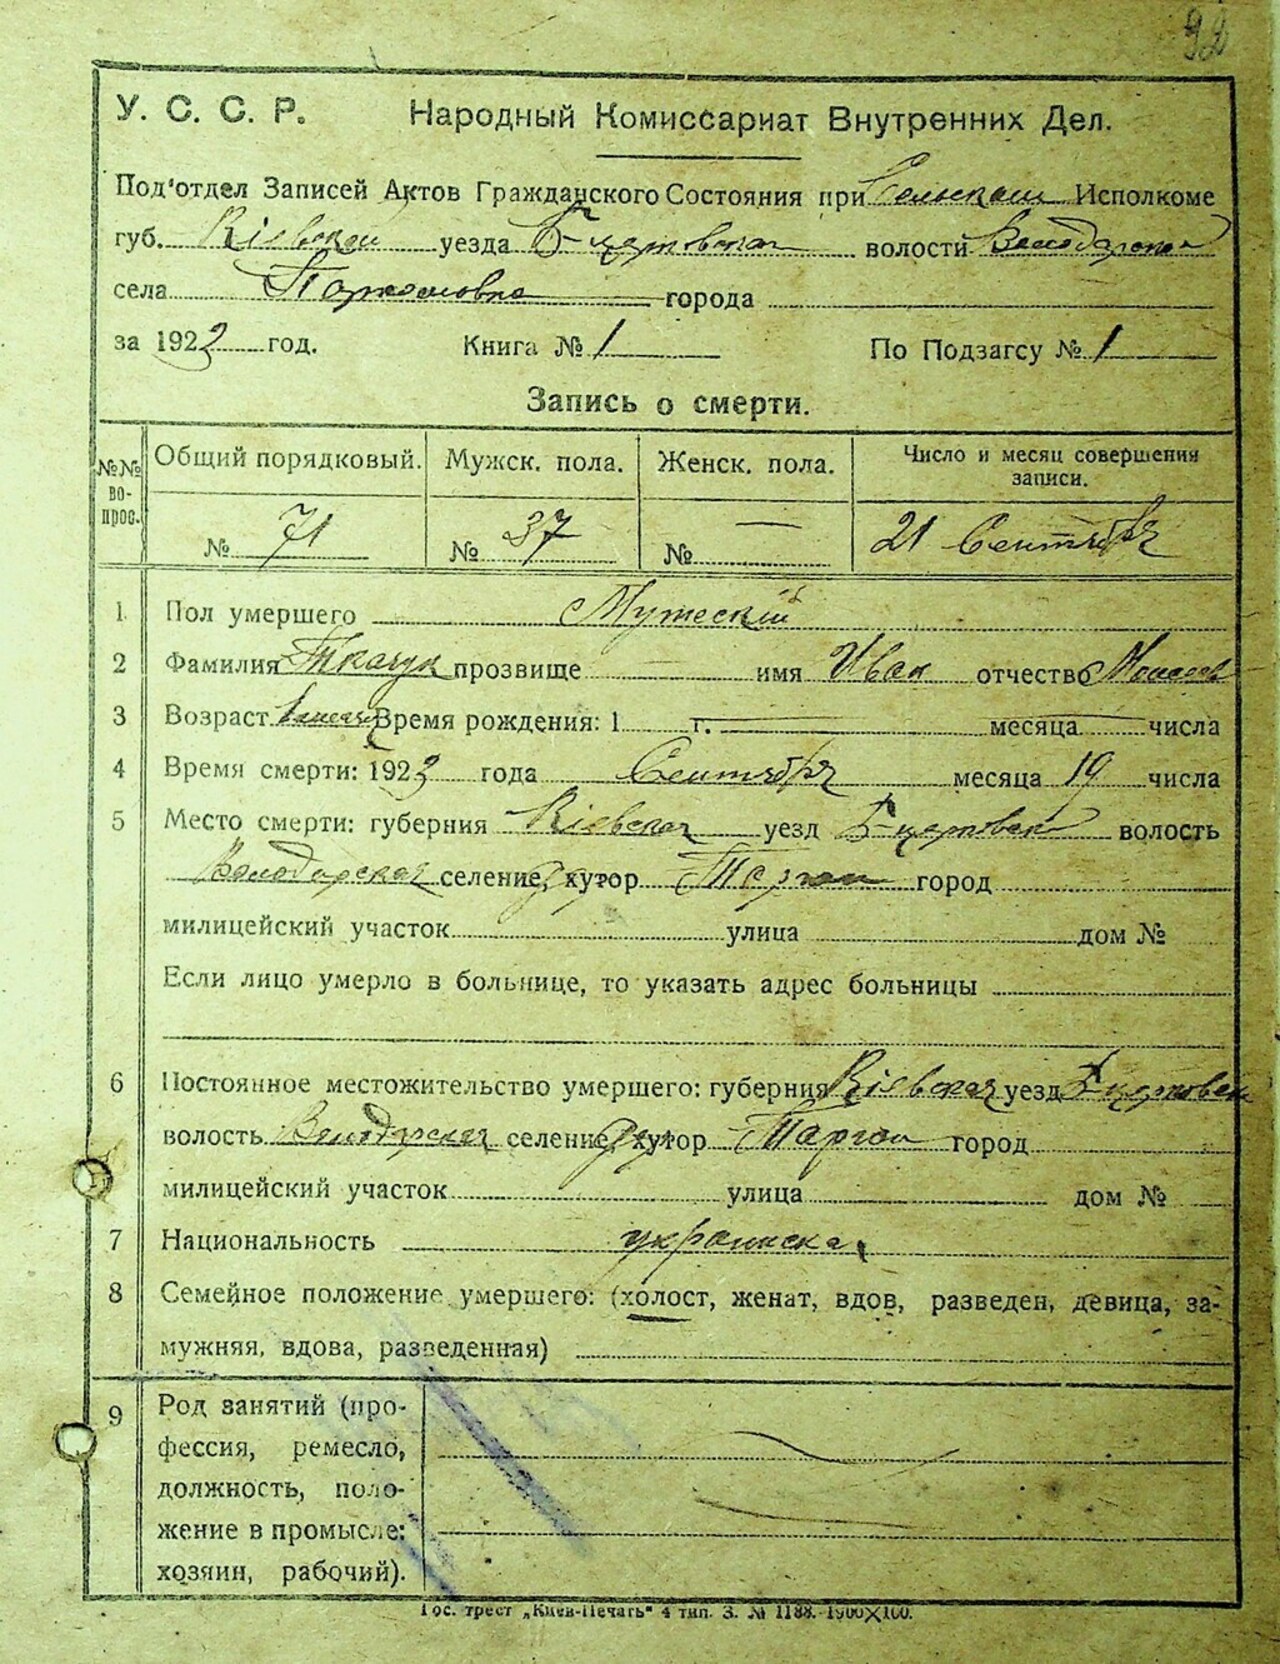 92
У. С. С. Р. Народный Комиссариат Внутренних Дел.
Под'отдел Записей Актов Гражданского Состояния при Сельском Исполкоме
губ. Кіевской уезда Б-церковская волости Володарской
села города
за 1923 год. Книга № 1 По Подзагсу № 1
Запись о смерти.
№№ вопрос. Общий порядковый. Мужск. пола. Женск. пола. Число и месяц совершения записи.
№ 71 № 37 № — 21 Сентября
1 Пол умершего Мужескій
2 Фамилия Ткачук прозвище — имя Иван отчество Моисеев
3 Возраст Время рождения: 1 г. месяца числа
4 Время смерти: 1923 года Сентября месяца 19 числа
5 Место смерти: губерния Кіевская уезд Б-церковск волость
Володарская селение, хутор Торган город
милицейский участок улица дом №
Если лицо умерло в больнице, то указать адрес больницы
6 Постоянное местожительство умершего: губерния Кіевская уезд Б-церковск
волость Володарская селение, хутор Торган город
милицейский участок улица дом №
7 Национальность украинская
8 Семейное положение умершего: (холост, женат, вдов, разведен, девица, за-
мужняя, вдова, разведенная)
9 Род занятий (про-
фессия, ремесло,
должность, поло-
жение в промысле:
хозяин, рабочий).
Гос. трест „Киев-Печать" 4 тип. З. № 1188. 1900×100.